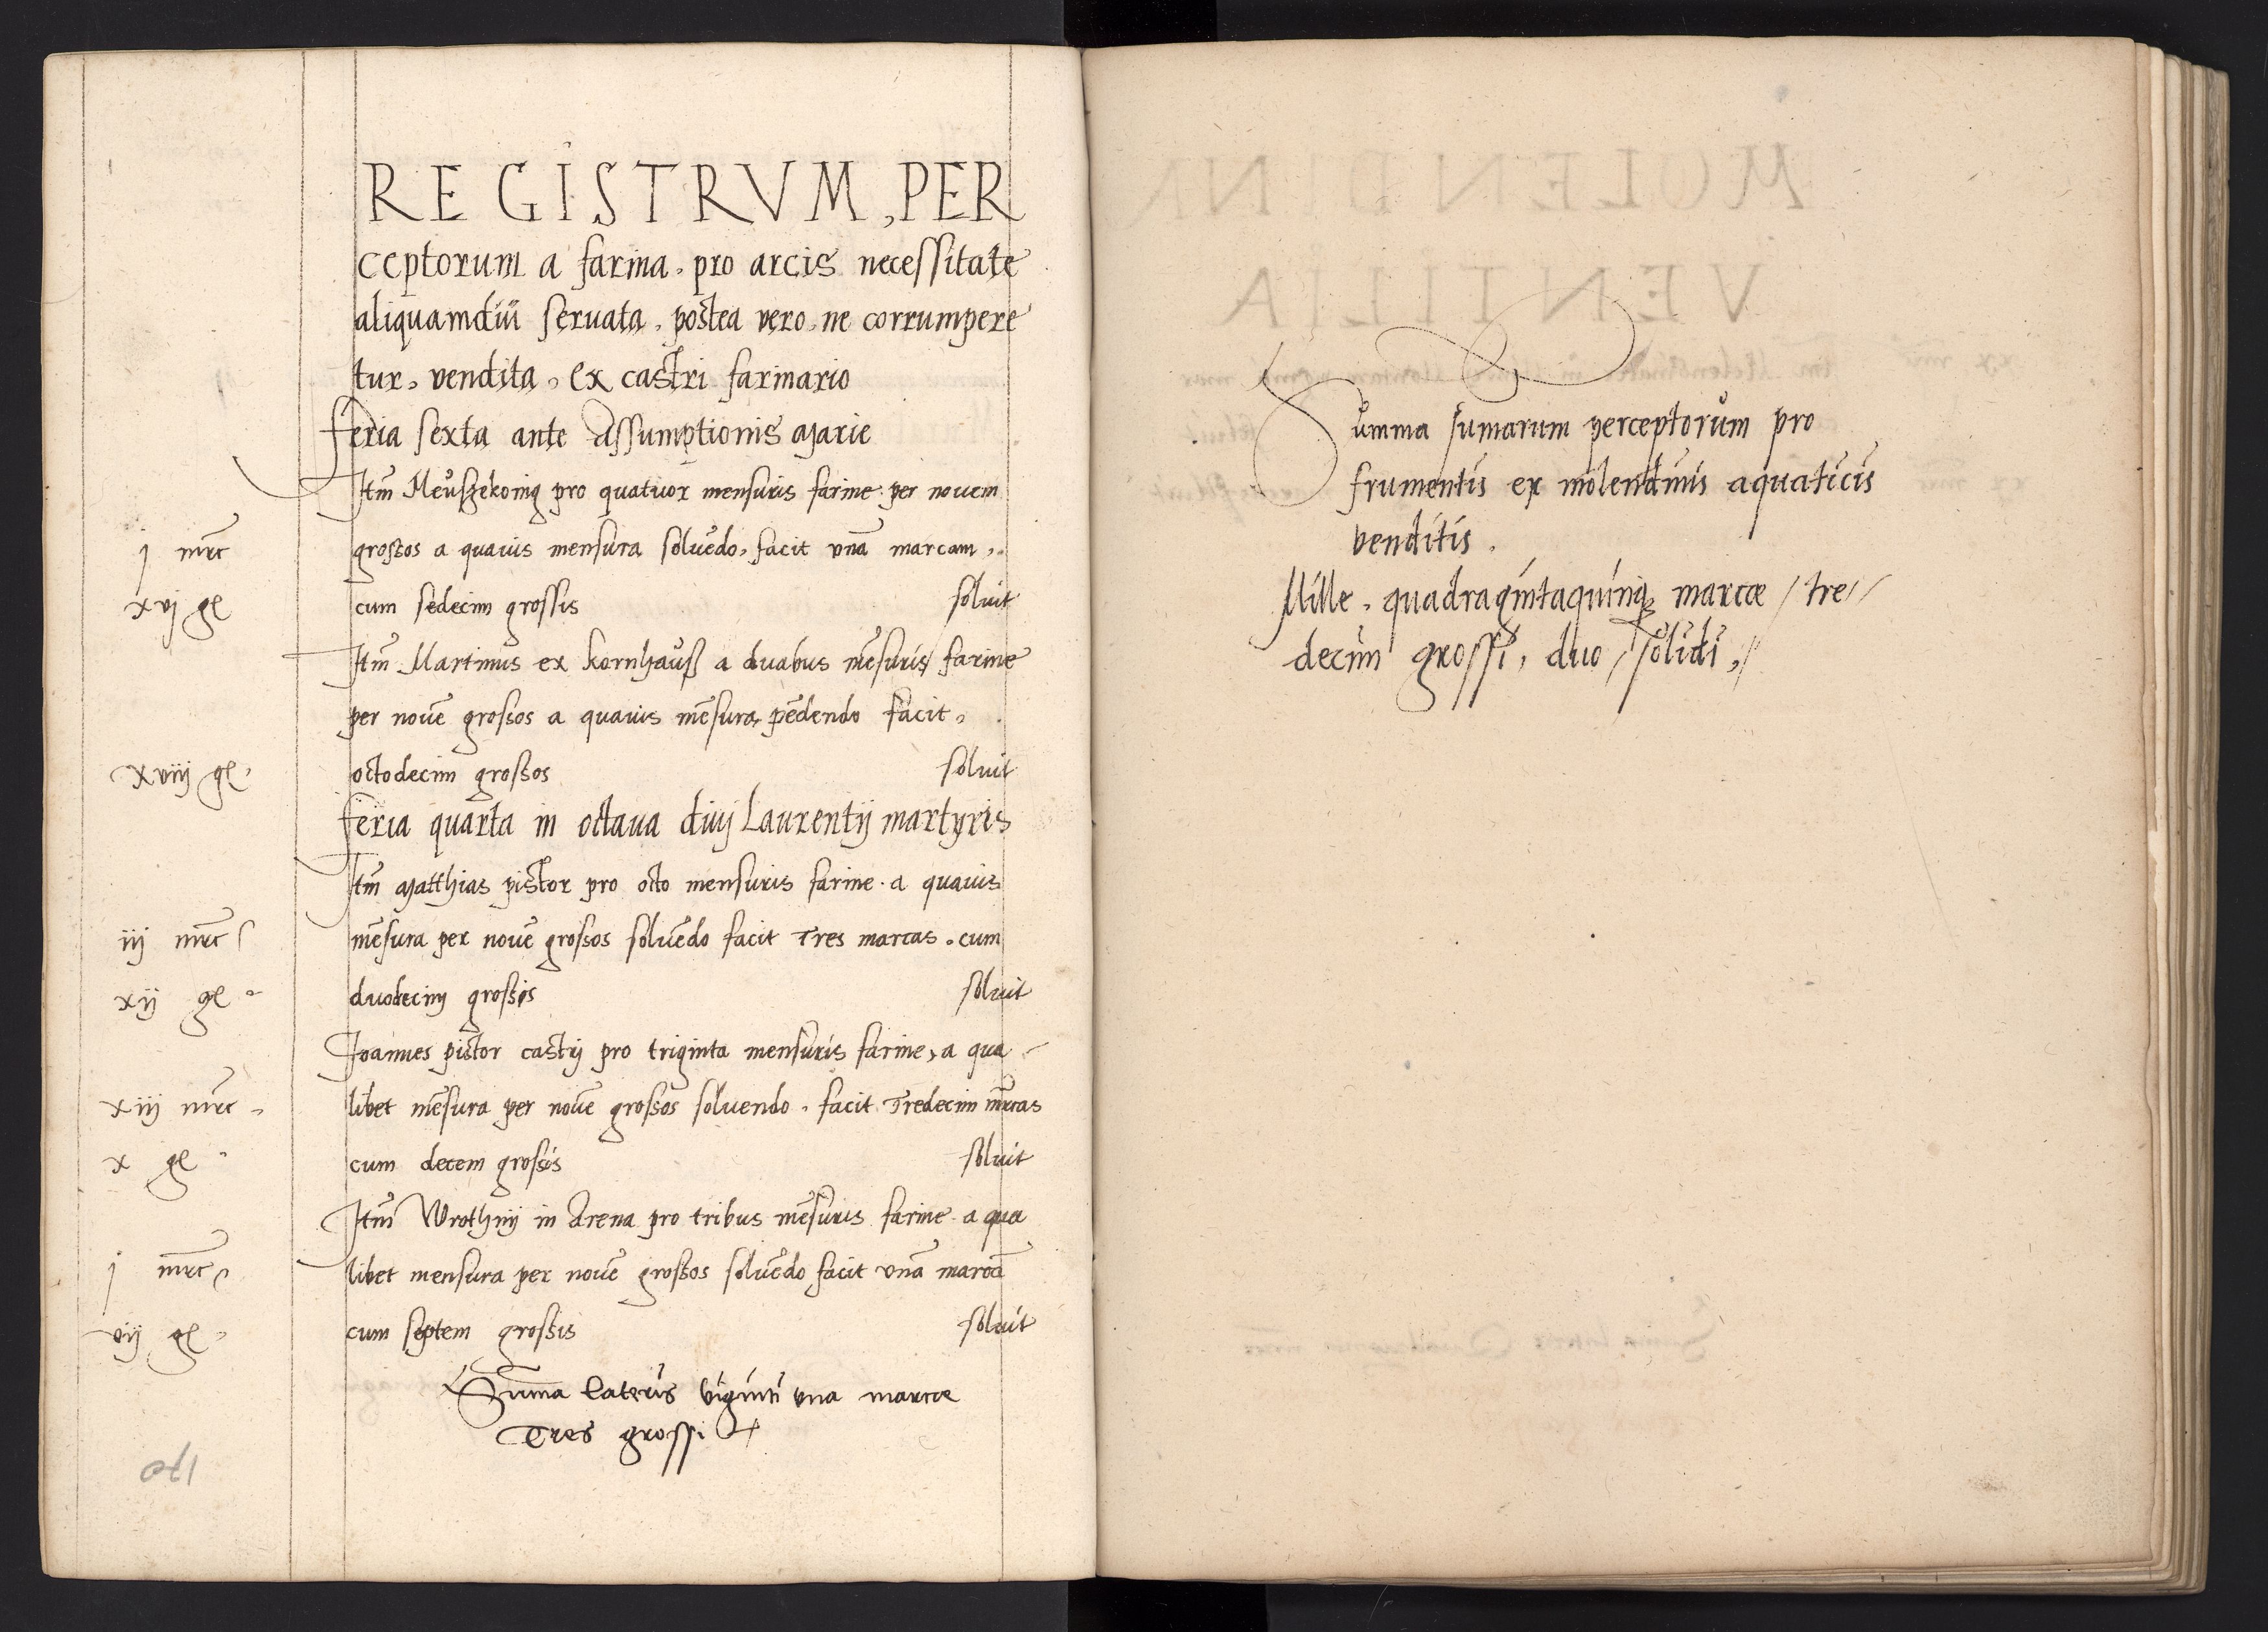 REGISTRVM, PER
ceptorum a farina, pro arcis necessitate
aliquamdiu seruata, postea vero, ne corrumpere
tur, vendita, ex castri farinario
feria sexta ante Assumptionis Marie
Itm̄ Meuszekonig pro quatuor mensuris farine per nouem
j mrc grossos a quauis mensura soluēdo, facit vnā marcam,
xvj gl cum sedecim grossis soluit
Itm̄ Martinus ex kornhauß a duabus mēsuris farine
per nouē grossos a quauis mēsura pēdendo facit,
xviij gl octodecim grossos soluit
feria quarta in octaua diuj Laurentij martyris
Itm̄ Matthias pistor pro octo mensuris farine a quauis
iij mrc mēsura per nouē grossos soluēdo facit Tres marcas, cum
xij gl duodecim grossis soluit
Joannes pistor castrj pro triginta mensuris farine, a qua
xiij mrc libet mēsura per nouē grossos soluendo, facit Tredecim mrcas
x gl cum decem grossis soluit
Itm̄ Wrothnij in Arena pro tribus mēsuris farine a qua
j mrc libet mensura per nouē grossos soluēdo facit vnā marcā
vij gl cum septem grossis soluit
Sum̄a lateris viginti vna marcæ
Tres grossi
Summa sumarum perceptorum pro
frumentis ex molendinis aquaticis
venditis.
Mille, quadragintaquinq marcæ / tre//
decim grossi, duo solidi,